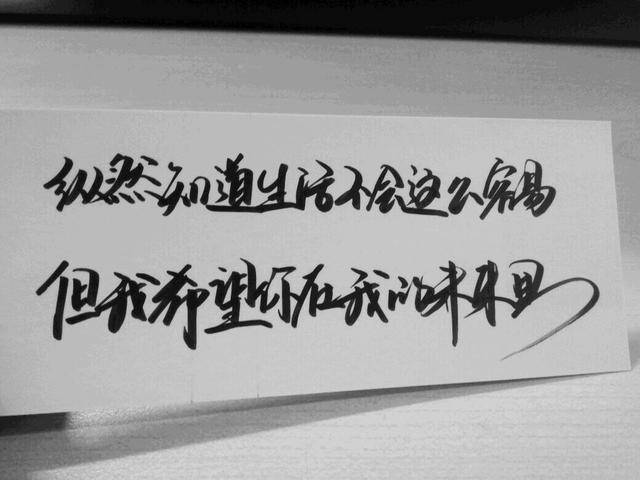 纵然知道生活不会这么容易
但我希望你在我的未来里